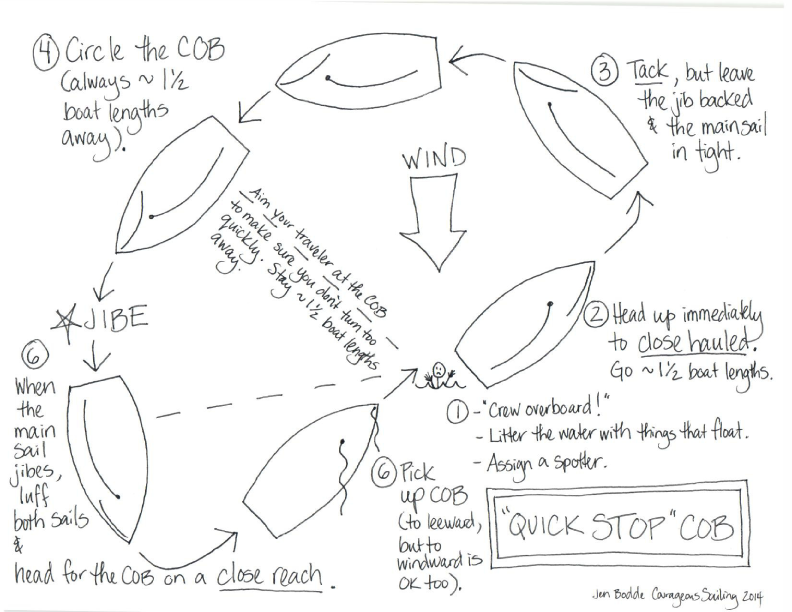 ④ Circle the COB
(always ~ 1½
boat lengths
away).
③ Tack, but leave
the jib backed
& the mainsail
in tight.
WIND
Aim your traveler at the COB
to make sure you don't turn too
quickly. Stay ~ 1½ boat lengths
away.
☆JIBE
② Head up immediately
to close hauled.
Go ~ 1½ boat lengths.
① - "Crew overboard!"
- Litter the water with things that float.
- Assign a spotter.
⑥
When
the
main
sail
jibes,
luff
both sails
&
head for the COB on a close reach.
⑥ Pick
up COB
(to leeward,
but to
windward is
OK too).
"QUICK STOP" COB
Jen Bodde Courageous Sailing 2014